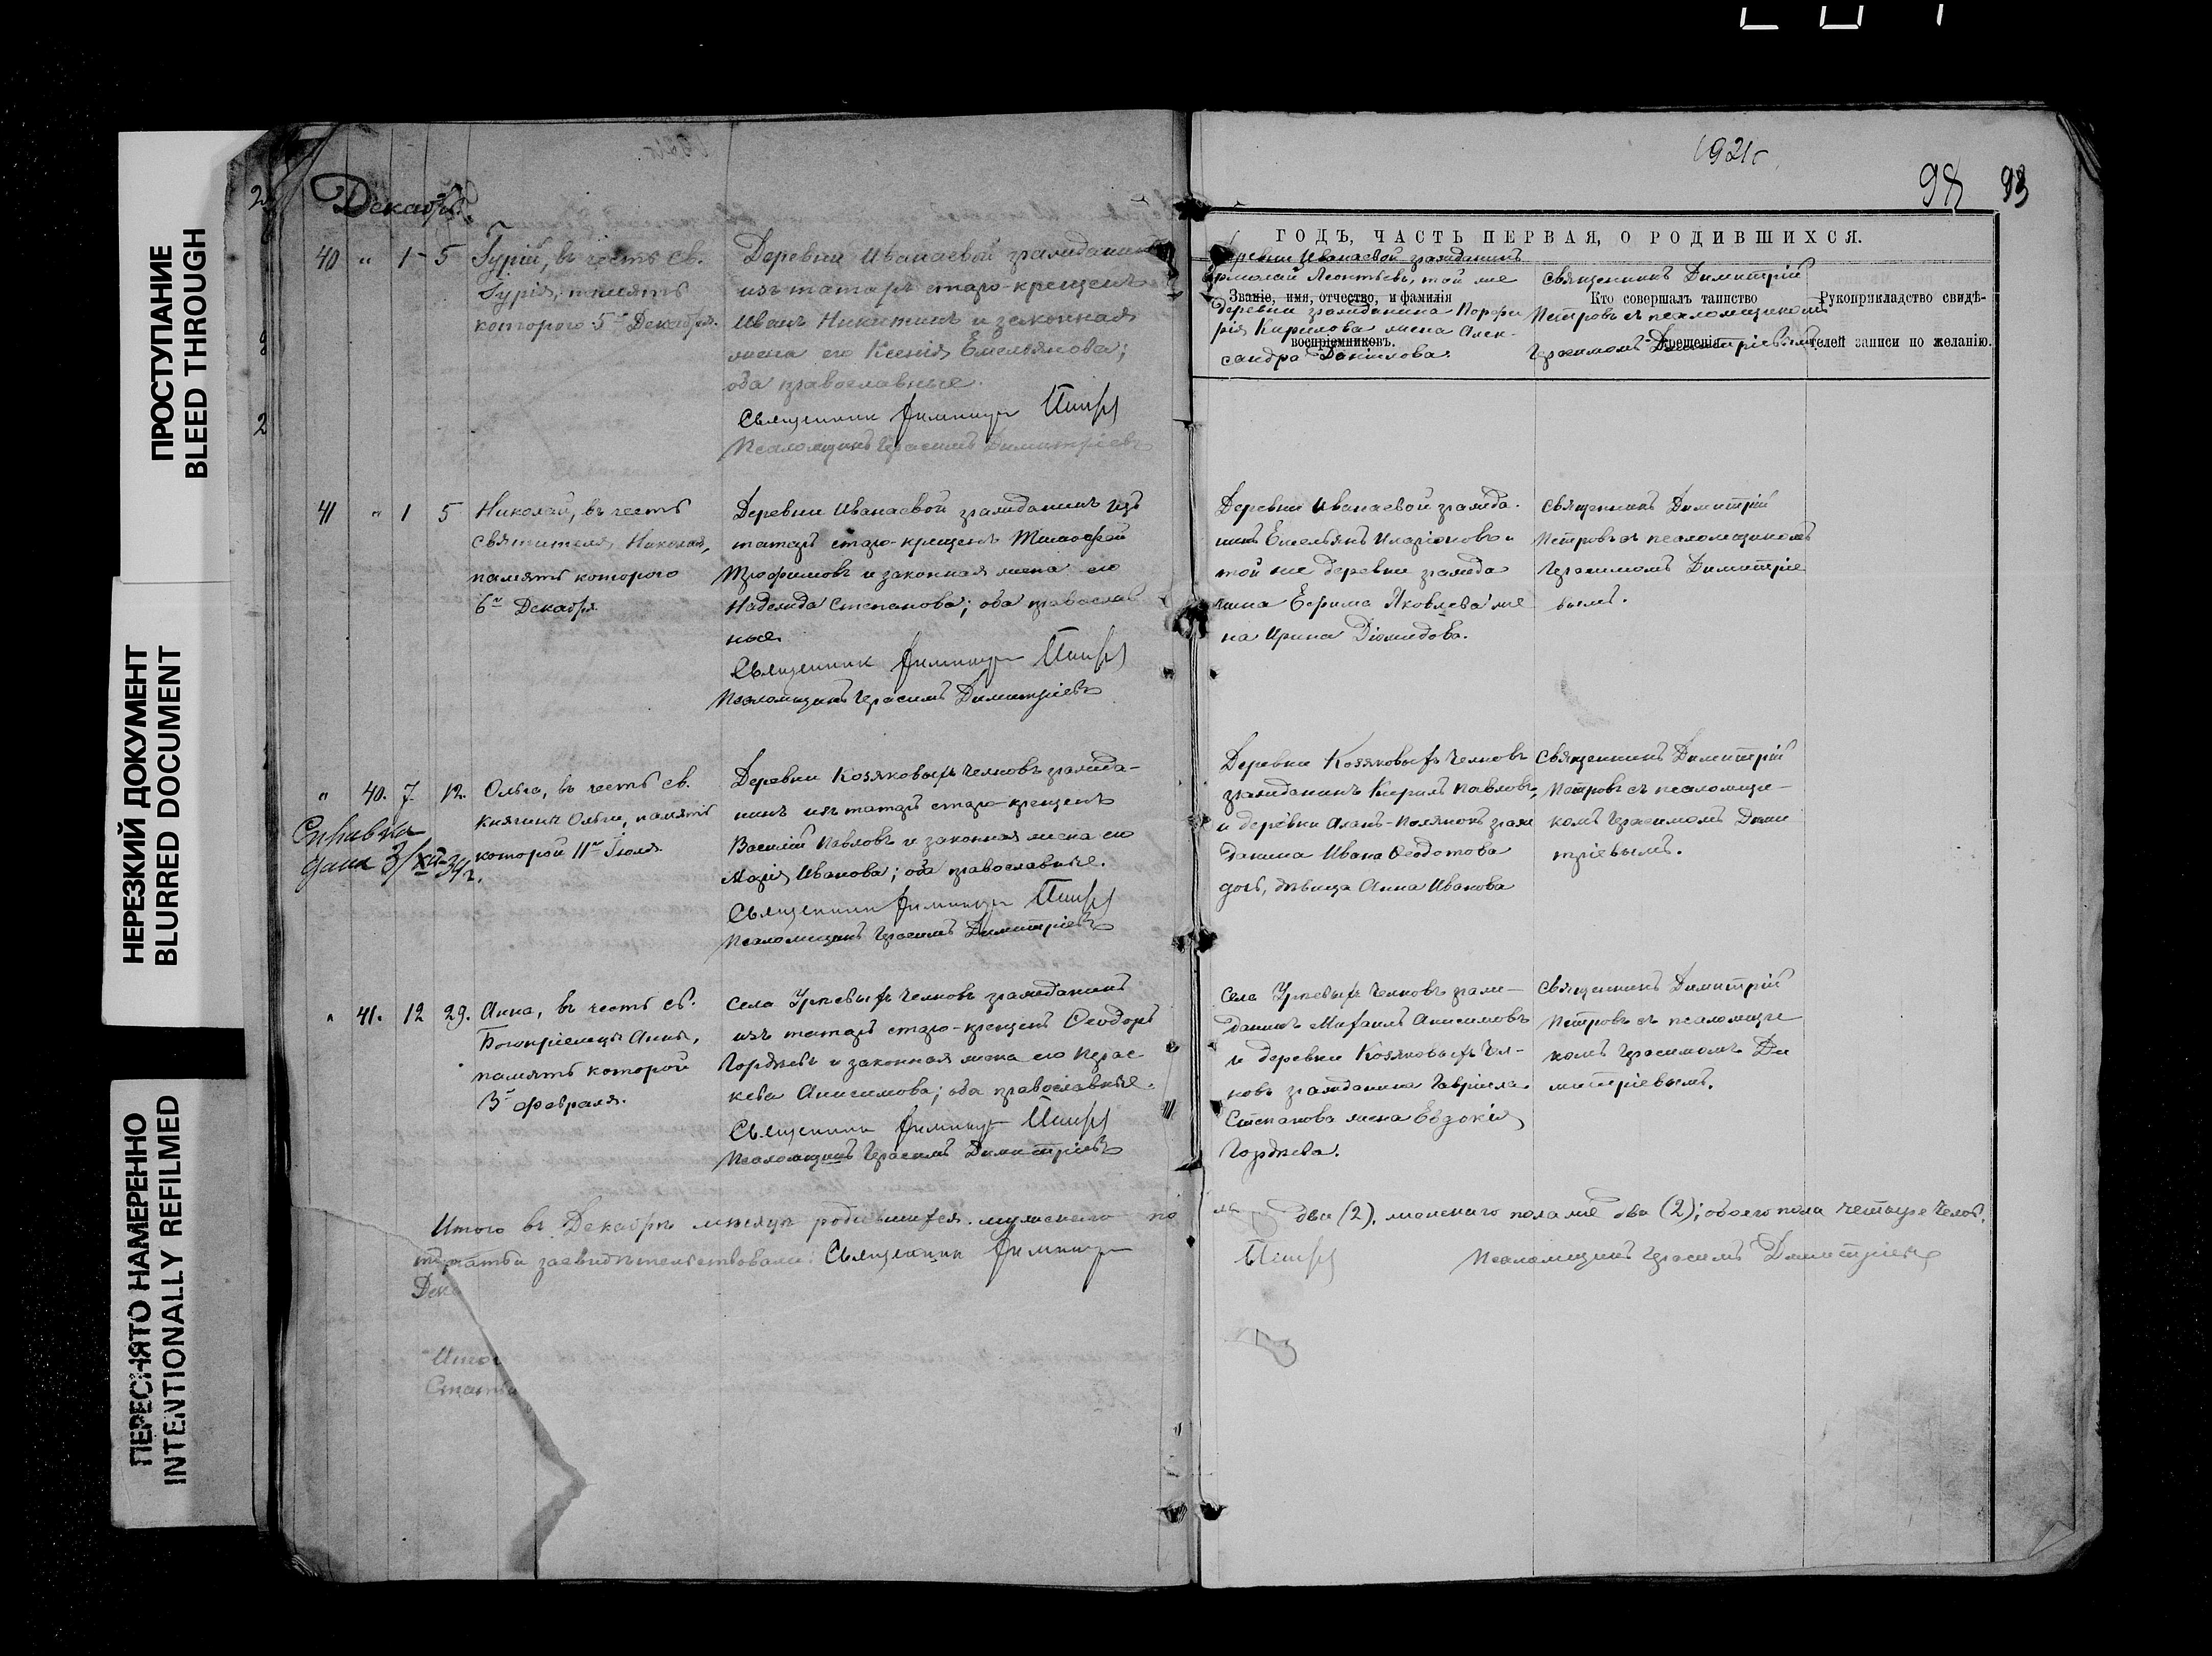 ПРОСТУПАНИЕ
BLEED THROUGH
НЕРЕЗКИЙ ДОКУМЕНТ
BLURRED DOCUMENT
ПЕРЕСНЯТО НАМЕРЕННО
INTENTIONALLY REFILMED
Декабрь.
40 " 1 5 Гурій, въ честь св.
Гурія, память
которого 5го Декабря.
Деревни Иванаевой гражданинъ
изъ татаръ старо-крещенъ
Иванъ Никитинъ и законная
жена его Ксенія Емельянова;
оба православные.
Священник Димитрий Петров
Псаломщикъ Герасимъ Димитріевъ
41 " 1 5 Николай, въ честь
святителя Николая,
память которого
6го Декабря
Деревни Иванаевой гражданинъ изъ
татаръ старо-крещенъ Тимофей
Трофимовъ и законная жена его
Надежда Степанова; оба православ
ные.
Священник Димитрий Петров
Псаломщикъ Герасимъ Димитріевъ
" 40. 7. 12. Ольга, въ честь св.
княгини Ольги, память
которой 11го Іюля
Справка
дана 3/XII-34г.
Деревни Козяковыхъ Челновъ гражда-
нинъ изъ татаръ старо-крещенъ
Василій Павловъ и законная жена его
Марія Иванова; оба православные.
Священник Димитрий Петров
Псаломщикъ Герасимъ Димитріевъ
" 41. 12 29. Анна, въ честь св.
Богопріемицы Анны,
память которой
3го февраля.
Села Уреевыхъ Челновъ гражданинъ
изъ татаръ старо-крещенъ Ѳеодоръ
Гордѣевъ и законная жена его Парас-
кева Анисимова; оба православные.
Священник Димитрий Петров
Псаломщикъ Герасимъ Димитріевъ
Итого въ Декабрѣ мѣсяцѣ родившихся мужского по
засвидѣтельствовали: Священник Димитрий
Дека
Итог
Статьи
1921г
93
ГОДЪ, ЧАСТЬ ПЕРВАЯ, О РОДИВШИХСЯ.
Званіе, имя, отчество, и фамилія
воспріемниковъ.
Кто совершалъ таинство
крещенія.
Рукоприкладство свидѣ-
телей записи по желанію.
Деревни Иванаевой гражданинъ
Ермолай Леонтьевъ, той же
деревни гражданина Порфи
рія Кирилова жена Алек-
сандра Данилова.
Священникъ Димитрій
Петровъ съ псаломщикомъ
Герасимомъ Димитріевымъ
Деревни Иванаевой гражда-
нинъ Емельянъ Иларіоновъ и
той же деревни гражда
нина Ефрема Яковлева же
на Ирина Діомидова.
Священникъ Димитрій
Петровъ съ псаломщикомъ
Герасимомъ Димитріе
вымъ.
Деревни Козяковыхъ Челновъ
гражданинъ Кирилъ Павловъ,
и деревни Аланъ-Полянокъ граж
данина Ивана Ѳеодотова
дочь, дѣвица Анна Иванова
Священникъ Димитрій
Петровъ съ псаломщи-
комъ Герасимомъ Дими
тріевымъ.
Села Уреевыхъ Челновъ граж-
данинъ Михаилъ Анисимовъ
и деревни Козяковыхъ Чел-
новъ гражданина Гавріила
Степанова жена Евдокія
Гордѣева.
Священникъ Димитрій
Петровъ съ псаломщи
комъ Герасимомъ Ди
митріевымъ.
ла два (2), женскаго пола же два (2); обоего пола четыре челов.
Петров Псаломщикъ Герасимъ Димитріевъ